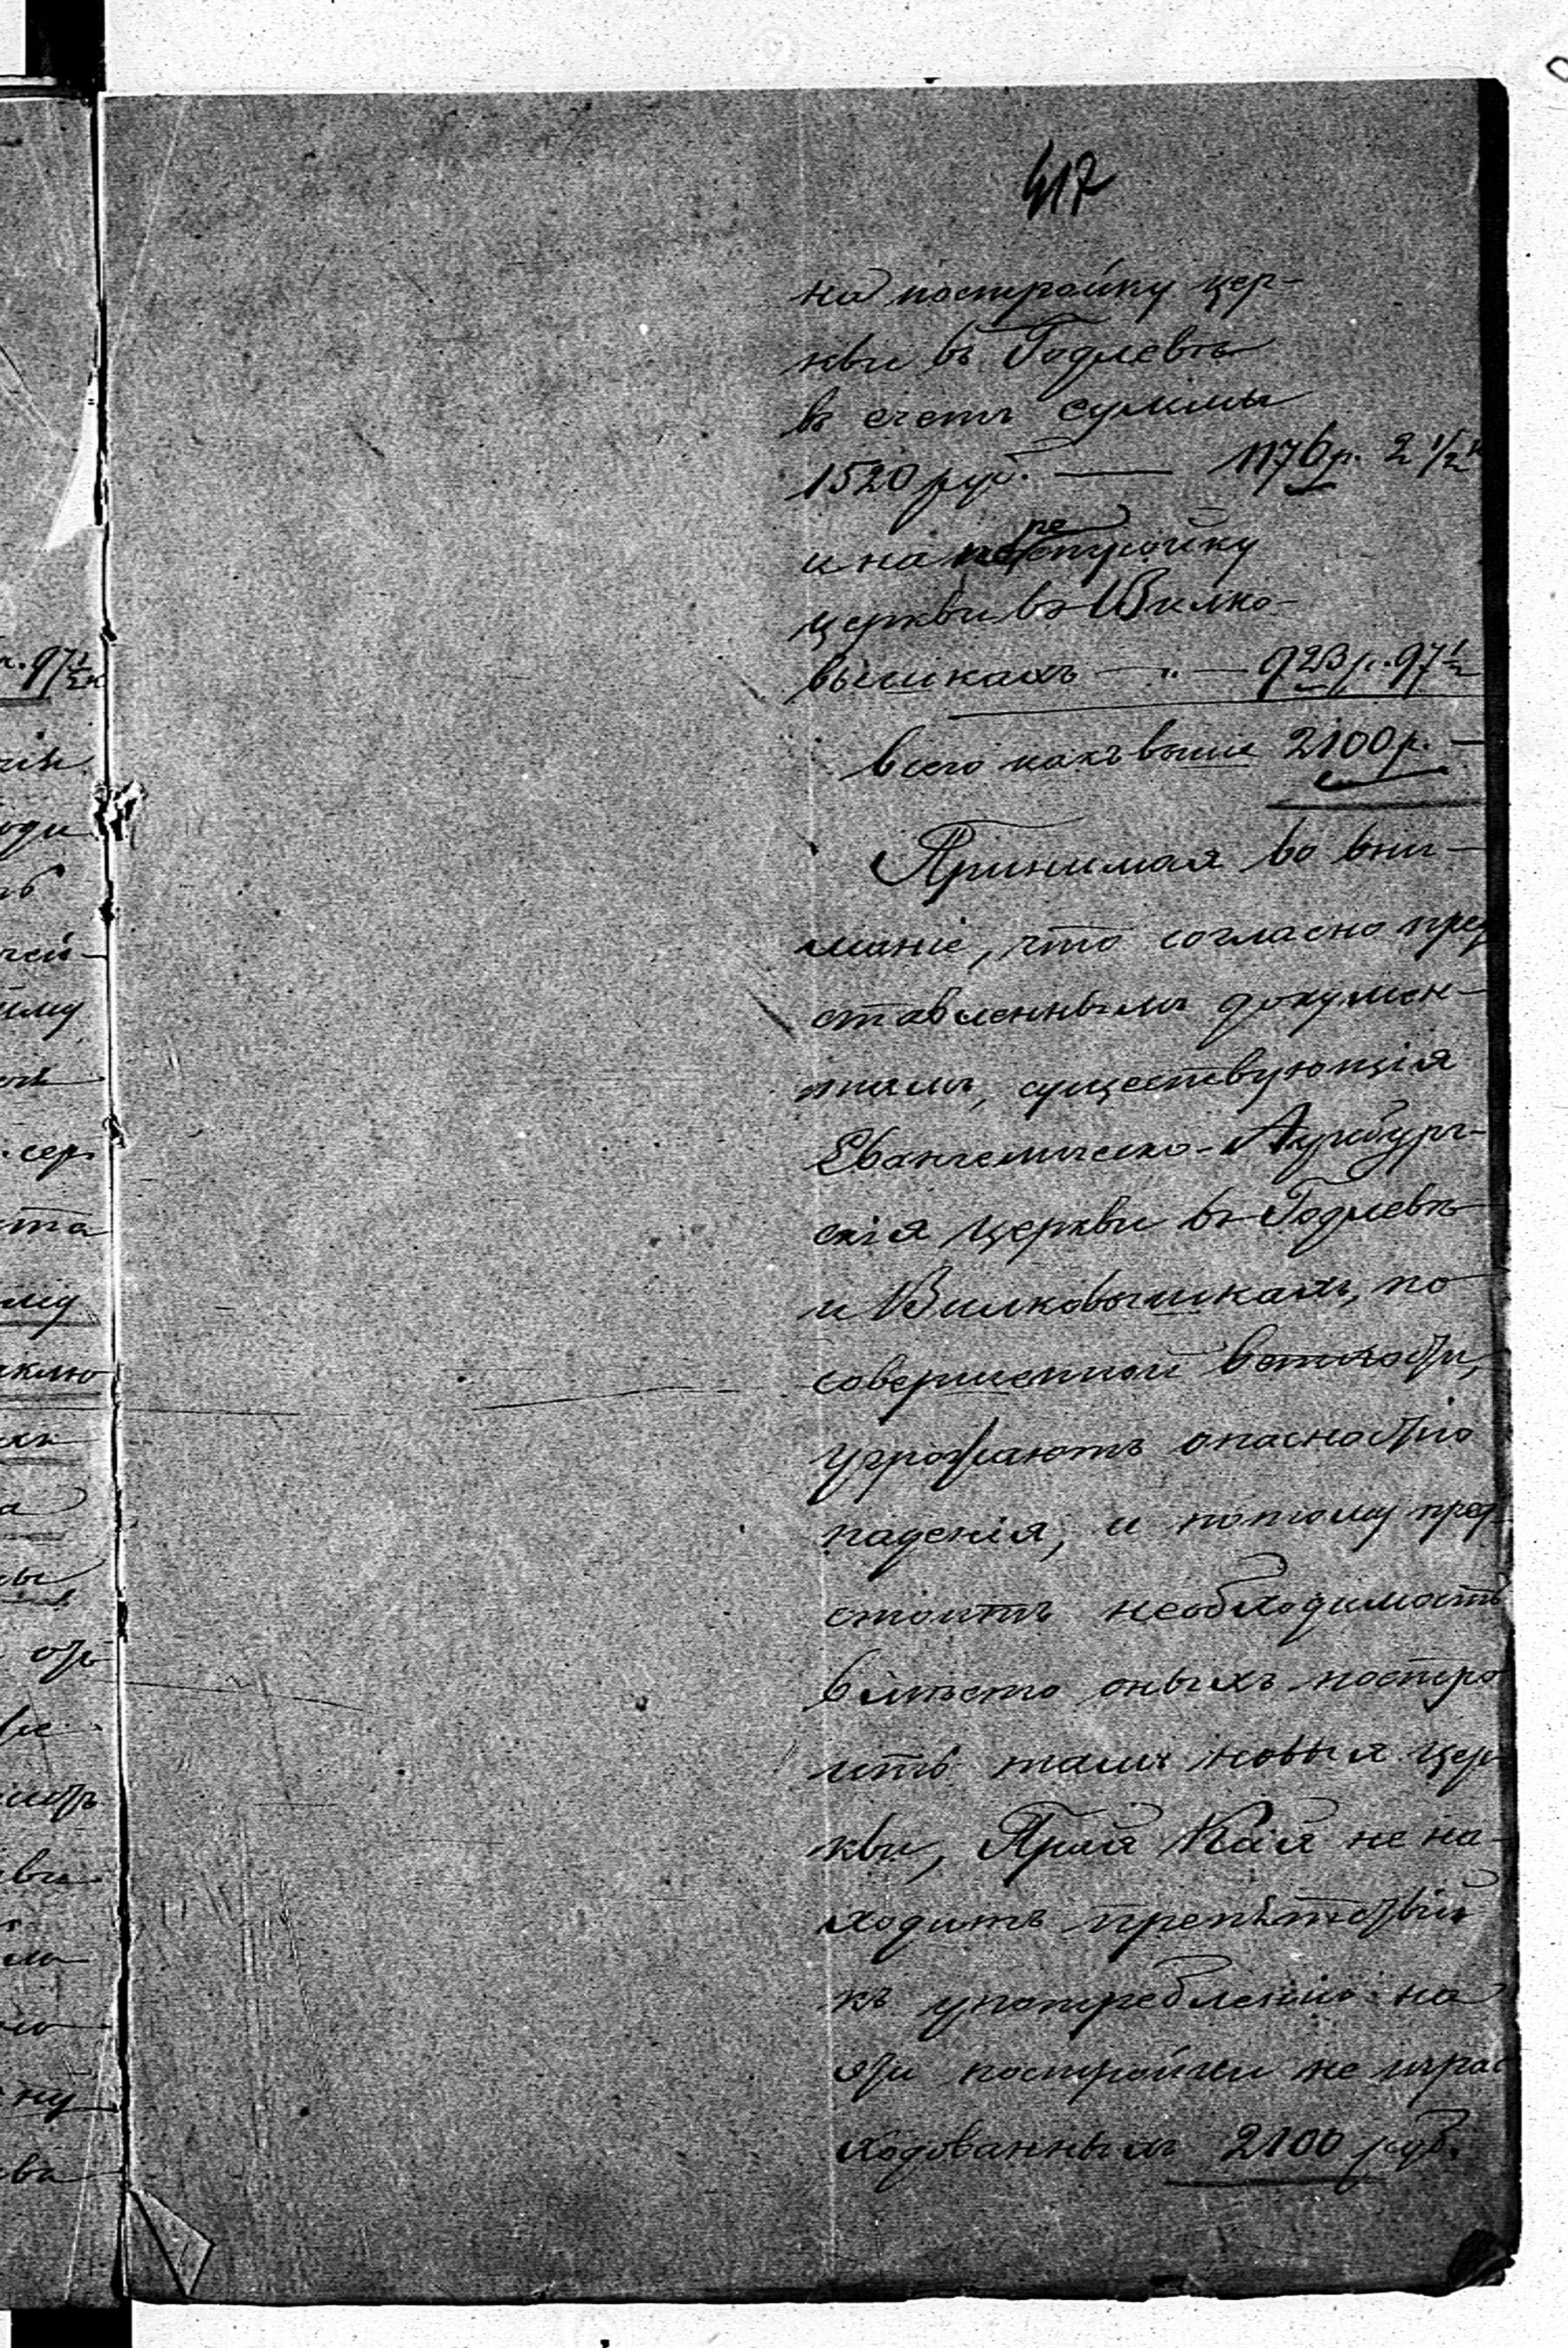 417
на постройку цер-
кви въ Годлевѣ
въ счетъ суммы
1520 руб. — 1176 р. 2 1/2 к
и на перестройку
церкви въ Вилко-
вышкахъ — „ — 923 р. 97 1/2
всего какъ выше 2100 р. —
Принимая во вни-
маніе, что согласно пред
ставленнымъ докумен-
тамъ, существующія
Евангелическо-Аугсбург-
скія церкви въ Годлевѣ
и Вилковышкахъ, по
совершенной ветхости,
угрожаютъ опасностію
паденія, и потому пред-
стоитъ необходимость
вмѣсто оныхъ постро
ить тамъ новыя цер
кви, Прая Кая не на-
ходитъ препятствій
къ употребленію на
эти постройки не израс
ходованныхъ 2100 руб.